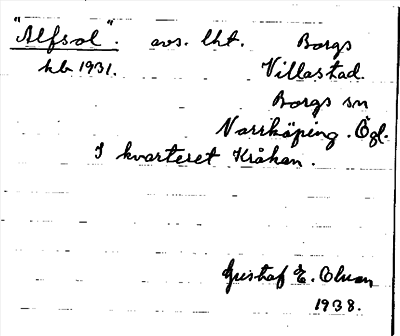 "Alfsol". avs. lht. Borgs
kb. 1931. Villastad.
Borgs sn
Norrköping. Ögl.
I kvarteret Kråkan.
Gustaf E. Olson
1938.